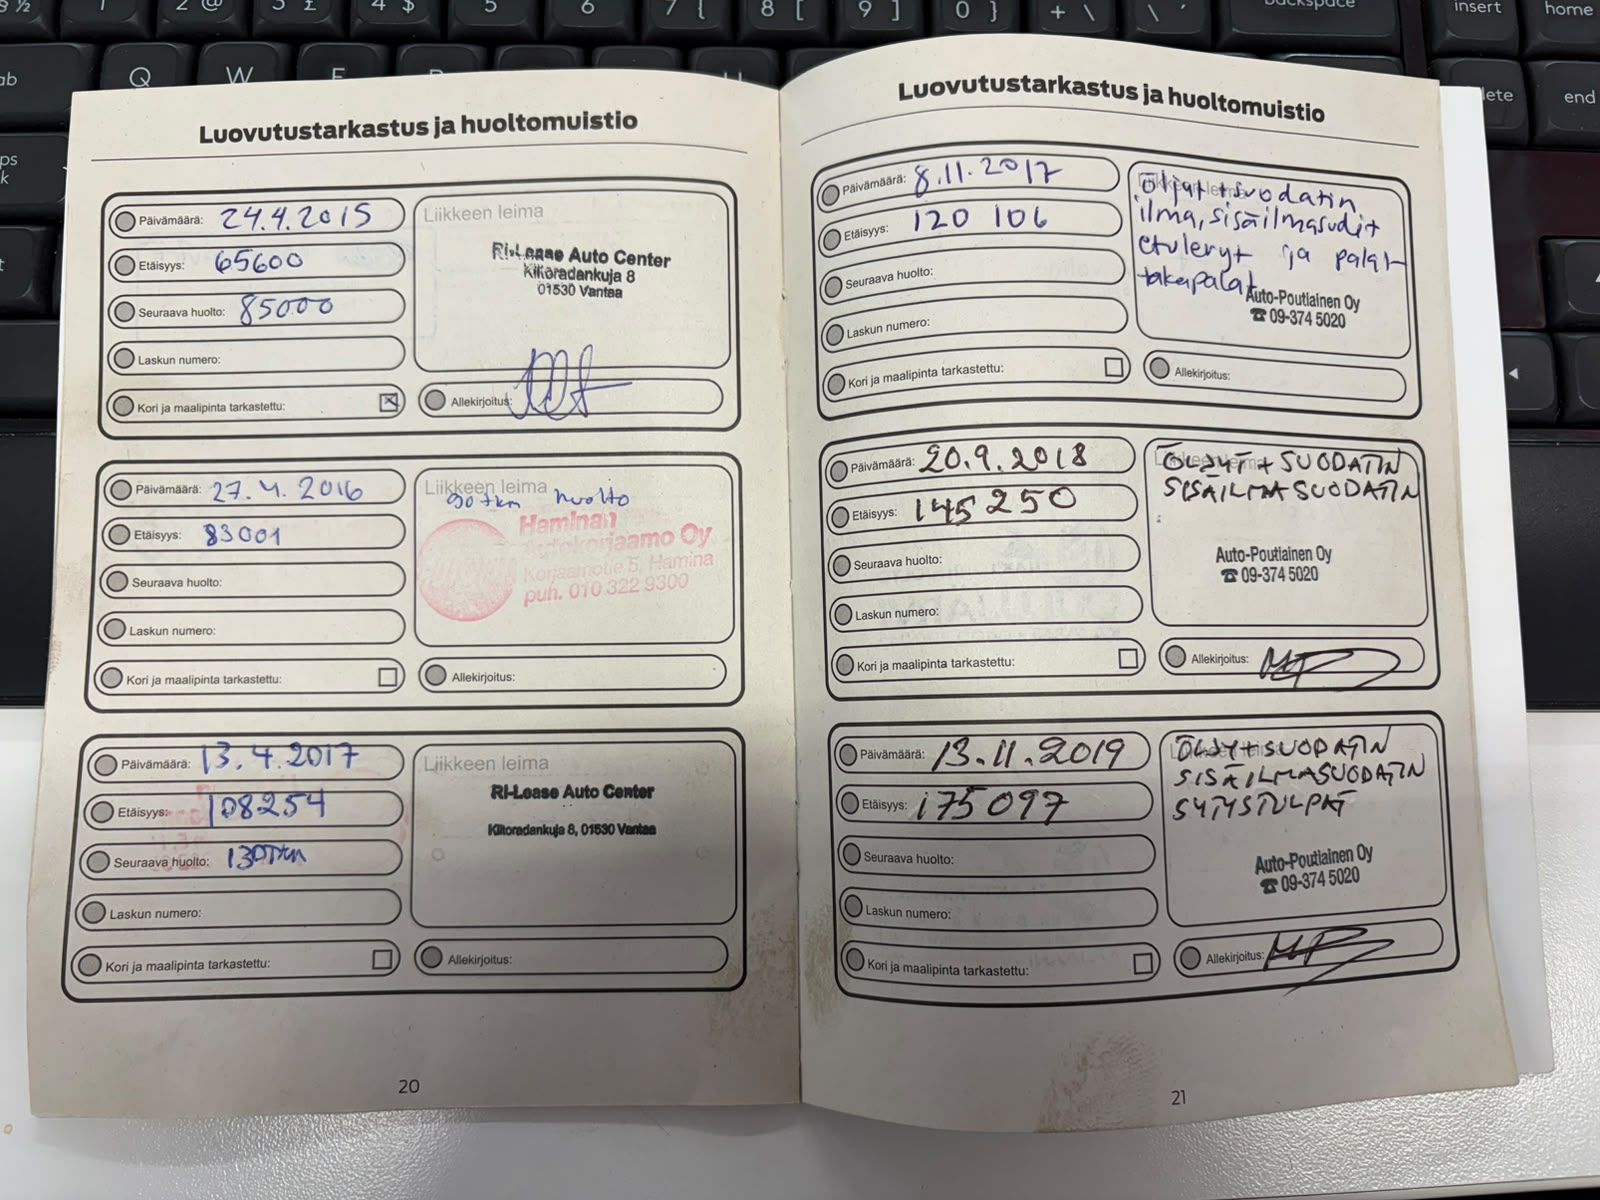 Luovutustarkastus ja huoltomuistio
Päivämäärä: 24.4.2015
Etäisyys: 65600
Seuraava huolto: 85000
Laskun numero:
Kori ja maalipinta tarkastettu:
Liikkeen leima
Ri-Lease Auto Center
Kiitoradankuja 8
01530 Vantaa
Allekirjoitus:
Päivämäärä: 27.4.2016
Etäisyys: 83001
Seuraava huolto:
Laskun numero:
Kori ja maalipinta tarkastettu:
Liikkeen leima
90 tkm huolto
Haminan
Autokorjaamo Oy
Korjaamotie 5, Hamina
puh. 010 322 9300
Allekirjoitus:
Päivämäärä: 13.4.2017
Etäisyys: 108254
Seuraava huolto: 130Tkm
Laskun numero:
Kori ja maalipinta tarkastettu:
Liikkeen leima
Ri-Lease Auto Center
Kiitoradankuja 8, 01530 Vantaa
Allekirjoitus:
20
Luovutustarkastus ja huoltomuistio
Päivämäärä: 8.11.2017
Etäisyys: 120 106
Seuraava huolto:
Laskun numero:
Kori ja maalipinta tarkastettu:
Liikkeen leima
Öljyt + suodatin
ilma, sisäilmasudit
etulevyt ja palat
takapalat
Auto-Poutiainen Oy
☎ 09-374 5020
Allekirjoitus:
Päivämäärä: 20.9.2018
Etäisyys: 145250
Seuraava huolto:
Laskun numero:
Kori ja maalipinta tarkastettu:
Liikkeen leima
ÖLJYT + SUODATIN
SISÄILMASUODATIN
Auto-Poutiainen Oy
☎ 09-374 5020
Allekirjoitus: MP
Päivämäärä: 13.11.2019
Etäisyys: 175097
Seuraava huolto:
Laskun numero:
Kori ja maalipinta tarkastettu:
Liikkeen leima
ÖLJY + SUODATIN
SISÄILMASUODATIN
SYTYSTULPAT
Auto-Poutiainen Oy
☎ 09-374 5020
Allekirjoitus: MP
21
1
2 @
3 £
4 $
5
6
7 {
8 [
9 ]
0 }
+ \
backspace
insert
home
end
Q
W